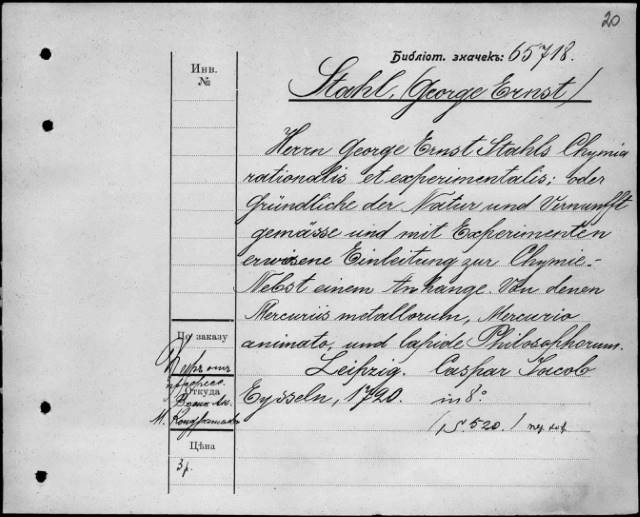 20
Библіот. значекъ: 65718.
Инв.
№
Stahl, (George Ernst)
Herrn George Ernst Stahls Chymia
rationalis et experimentalis; oder
Gründliche der Natur und Vernunfft
gemässe und mit Experimenten
erwisene Einleitung zur Chymie.-
Nebst einem Anhange. Von denen
Mercuriis metallorum, Mercurio
animato, und lapide Philosophorum.
Leipzig. Caspar Jacob
Eysseln, 1720. in 8°
(S. 520.)
По заказу
Откуда
Цѣна
3 р.